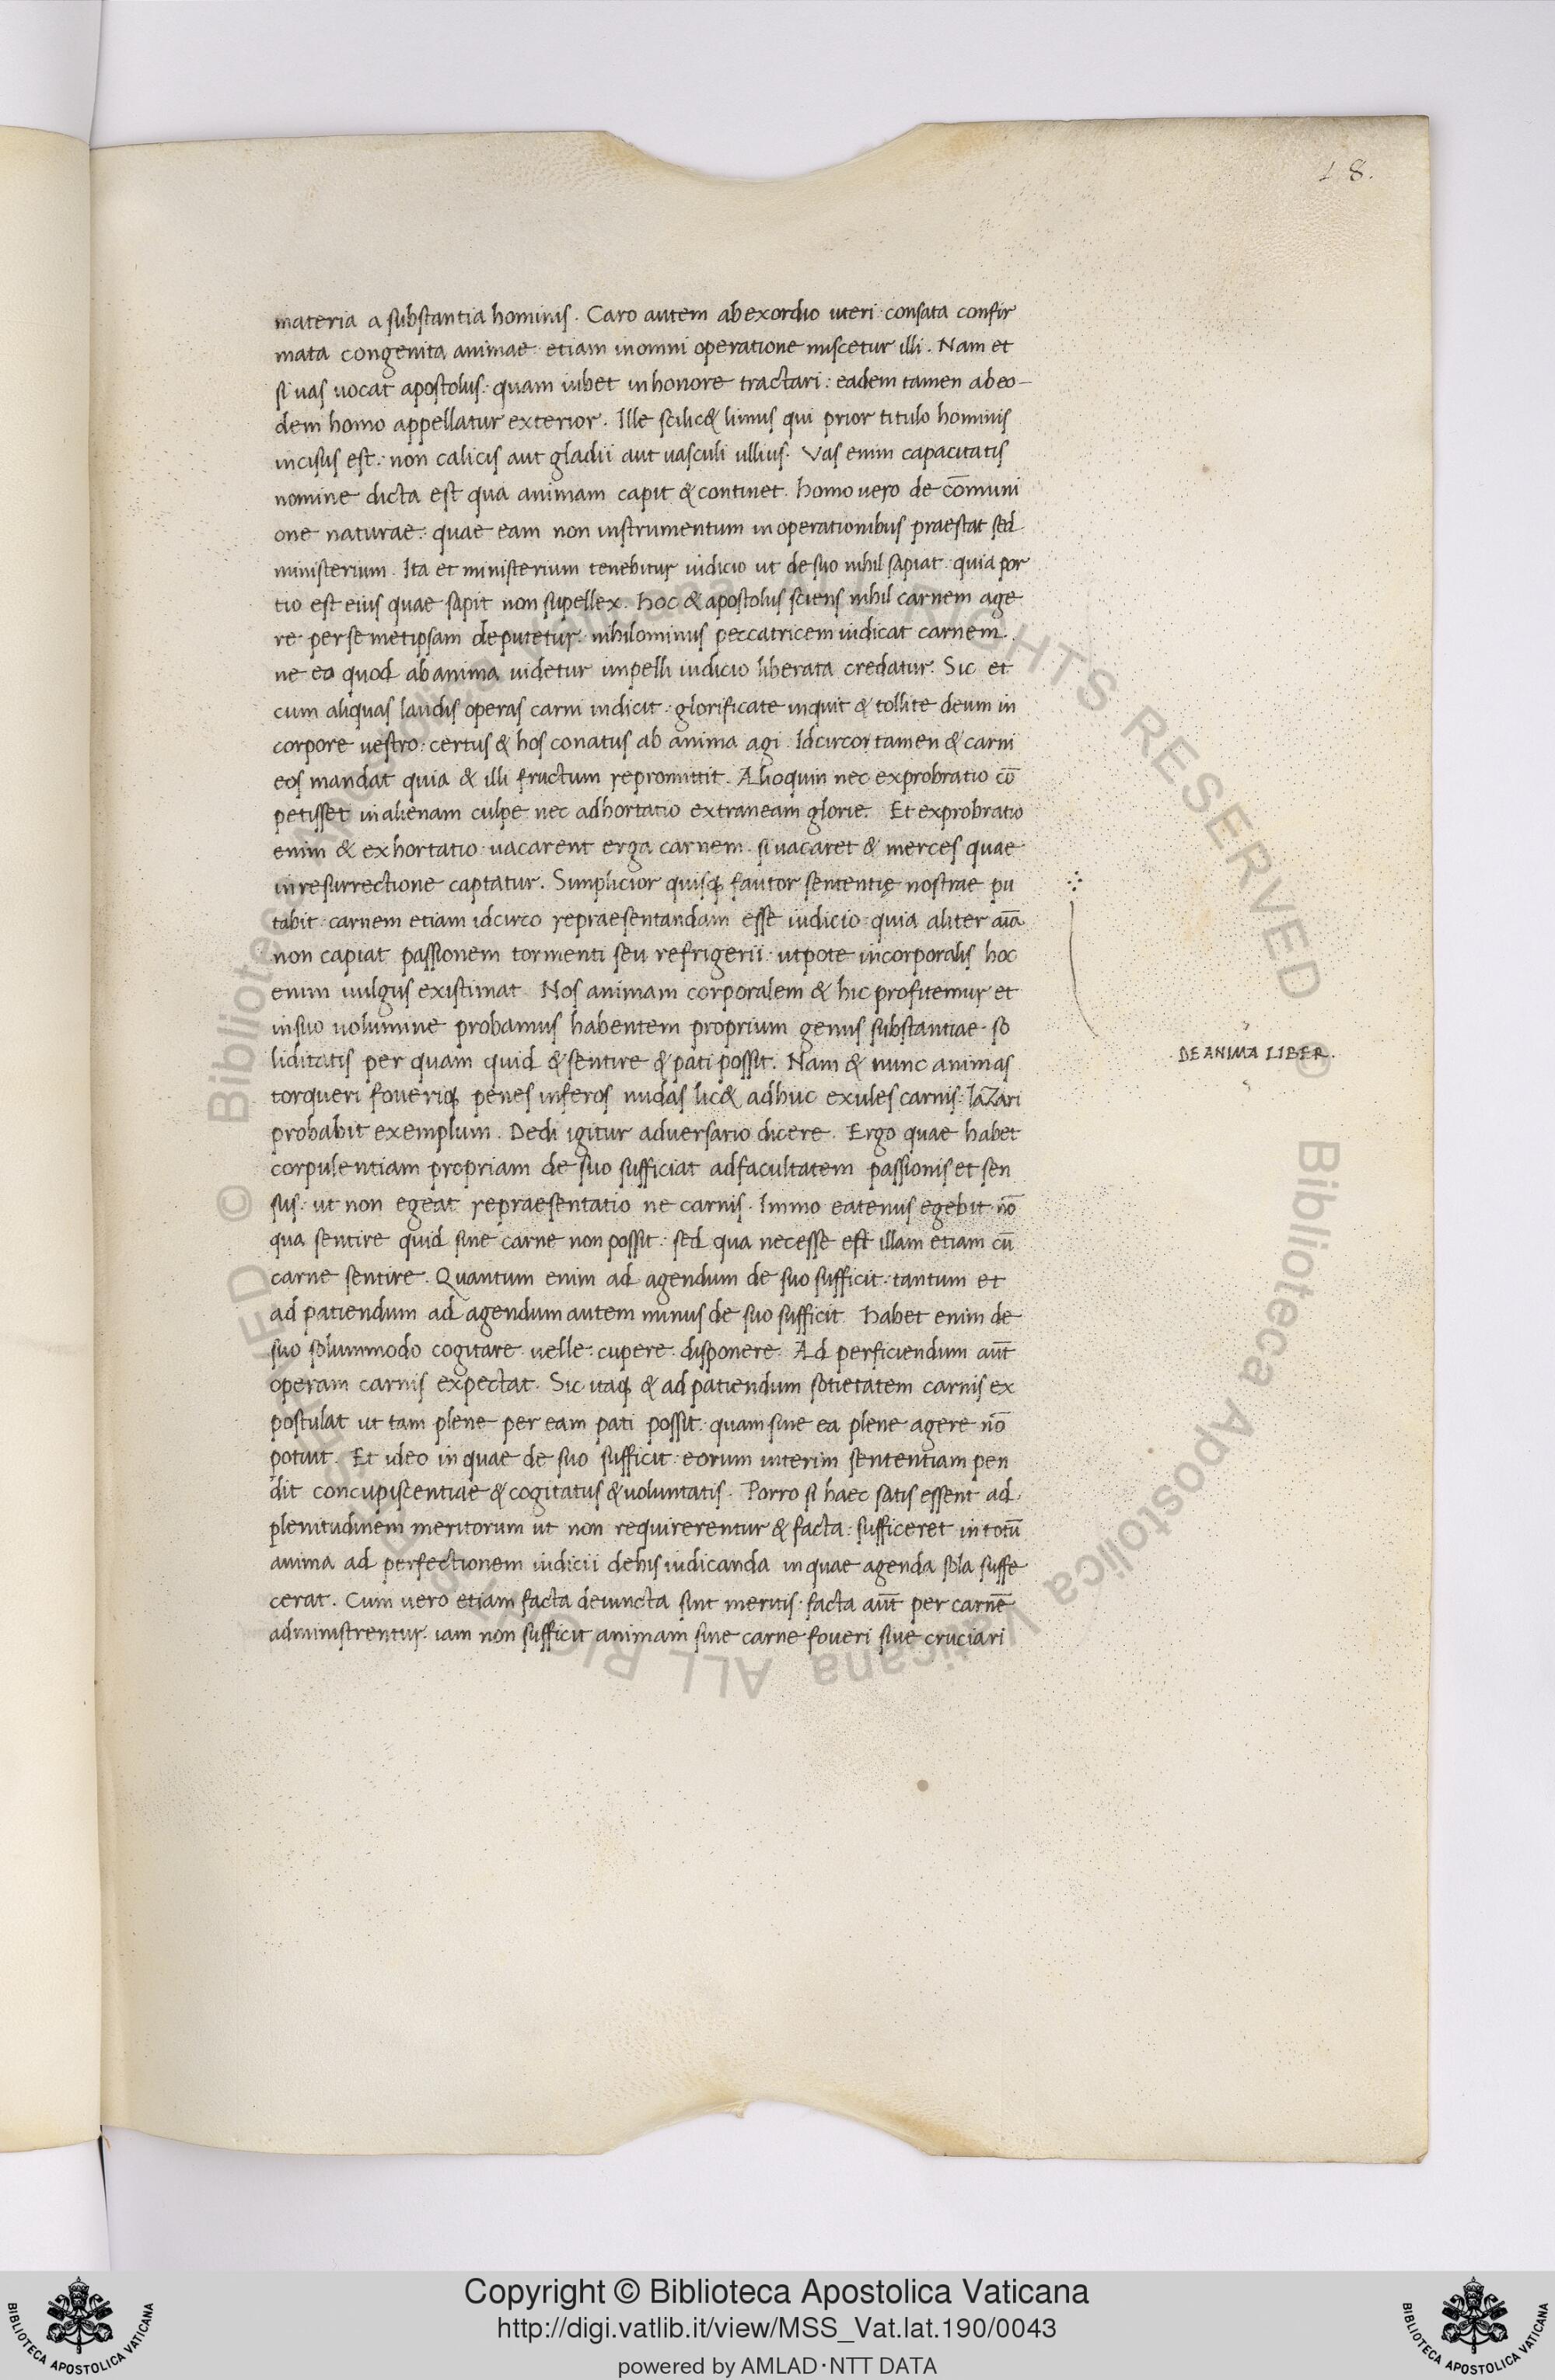 18.
materia a substantia hominis. Caro autem ab exordio uteri: consata confir
mata congenita animae: etiam in omni operatione miscetur illi. Nam et
si uas uocat apostolus: quam iubet in honore tractari: eadem tamen ab eo-
dem homo appellatur exterior. Ille scilic& limus qui prior titulo hominis
incisus est: non calicis aut gladii aut uasculi ullius. Vas enim capacitatis
nomine dicta est qua animam capit & continet. homo uero de cōmuni
one naturae: quae eam non instrumentum in operationibus praestat sed
ministerium. Ita et ministerium tenebitur iudicio ut de suo nihil sapiat: quia por
tio est eius quae sapit non supellex. hoc & apostolus sciens nihil carnem age
re per se metipsam deputetur: nihilominus peccatricem iudicat carnem.
ne eo quod ab anima uidetur impelli iudicio liberata credatur. Sic et
cum aliquas laudis operas carni indicit: glorificate inquit & tollite deum in
corpore uestro: certus & hos conatus ab anima agi. Idcircor tamen & carni
eos mandat quia & illi fructum repromittit. Alioquin nec exprobratio cō
petisset in alienam culpe nec adhortatio extraneam glorie. Et exprobratio
enim & exhortatio uacarent erga carnem. si uacaret & merces quae
in resurrectione captatur. Simplicior quisq fautor sententię nostrae pu
tabit: carnem etiam idcirco repraesentandam esse iudicio: quia aliter aīa
non capiat passionem tormenti seu refrigerii: utpote incorporalis hoc
enim uulgus existimat. Nos animam corporalem & hic profitemur et
in suo uolumine probamus habentem proprium genus substantiae. so
liditatis per quam quid & sentire & pati possit. Nam & nunc animas
torqueri foueriq penes inferos nudas lic& adhuc exules carnis: laZari
probabit exemplum. Dedi igitur aduersario dicere. Ergo quae habet
corpulentiam propriam de suo sufficiat ad facultatem passionis et sen
sus: ut non egeat repraesentatio ne carnis. Immo eatenus egebit nō
qua sentire quid sine carne non possit: sed qua necesse est illam etiam cū
carne sentire. Quantum enim ad agendum de suo sufficit: tantum et
ad patiendum ad agendum autem minus de suo sufficit. habet enim de
suo solummodo cogitare. uelle. cupere. disponere. Ad perficiendum aūt
operam carnis expectat. Sic itaq & ad patiendum sotietatem carnis ex
postulat ut tam plene per eam pati possit: quam sine ea plene agere nō
potuit. Et ideo in quae de suo sufficit: eorum interim sententiam pen
dit concupiscentiae & cogitatus & uoluntatis. Porro si haec satis essent ad
plenitudinem meritorum ut non requirerentur & facta: sufficeret in totū
anima ad perfectionem iudicii de his iudicanda in quae agenda sola suffe
cerat. Cum uero etiam facta deuincta sint meritis: facta aūt per carnē
administrentur. iam non sufficit animam sine carne foueri siue cruciari
DE ANIMA LIBER.
© Biblioteca Apostolica Vaticana ALL RIGHTS RESERVED
Copyright © Biblioteca Apostolica Vaticana
http://digi.vatlib.it/view/MSS_Vat.lat.190/0043
powered by AMLAD·NTT DATA
BIBLIOTECA APOSTOLICA VATICANA
BIBLIOTECA APOSTOLICA VATICANA